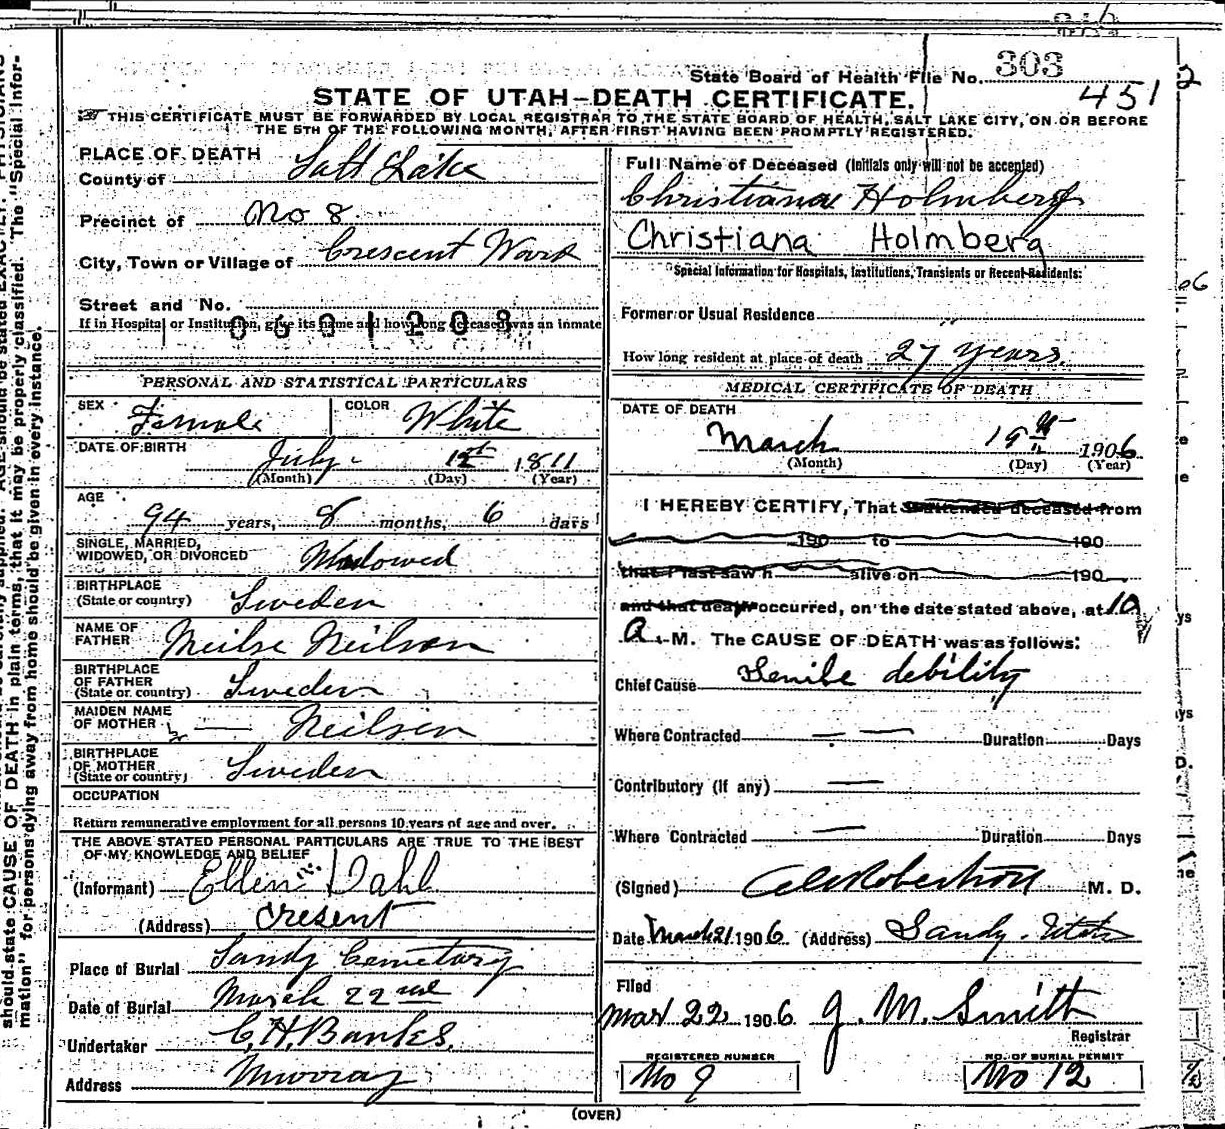 303
State Board of Health File No.
451
2
STATE OF UTAH–DEATH CERTIFICATE.
THIS CERTIFICATE MUST BE FORWARDED BY LOCAL REGISTRAR TO THE STATE BOARD OF HEALTH, SALT LAKE CITY, ON OR BEFORE
THE 5TH OF THE FOLLOWING MONTH, AFTER FIRST HAVING BEEN PROMPTLY REGISTERED.
PLACE OF DEATH
County of Salt Lake
Precinct of No 8
City, Town or Village of Crescent Ward
Street and No.
If in Hospital or Institution, give its name and how long deceased was an inmate
0601208
PERSONAL AND STATISTICAL PARTICULARS
SEX Female COLOR White
DATE OF BIRTH July 12th 1811
(Month) (Day) (Year)
AGE
94 years, 8 months, 6 days
SINGLE, MARRIED,
WIDOWED, OR DIVORCED Widowed
BIRTHPLACE
(State or country) Sweden
NAME OF
FATHER Neilse Neilson
BIRTHPLACE
OF FATHER
(State or country) Sweden
MAIDEN NAME
OF MOTHER — Neilsen
BIRTHPLACE
OF MOTHER
(State or country) Sweden
OCCUPATION
Return remunerative employment for all persons 10 years of age and over.
THE ABOVE STATED PERSONAL PARTICULARS ARE TRUE TO THE BEST
OF MY KNOWLEDGE AND BELIEF
(Informant) Ellen Dahl
(Address) Cresent
Place of Burial Sandy Cemetary
Date of Burial March 22nd
Undertaker C. H. Banks.
Address Murray
Full Name of Deceased (Initials only will not be accepted)
Christiana Holmberg
Christiana Holmberg
Special Information for Hospitals, Institutions, Transients or Recent Residents:
Former or Usual Residence
How long resident at place of death 27 years.
MEDICAL CERTIFICATE OF DEATH
DATE OF DEATH
March 19th 1906
(Month) (Day) (Year)
I HEREBY CERTIFY, That I attended deceased from
190 to 190
that I last saw h alive on 190
and that death occurred, on the date stated above, at 10
A. M. The CAUSE OF DEATH was as follows:
Chief Cause Senile debility
Where Contracted — — Duration Days
Contributory (if any) —
Where Contracted — Duration Days
(Signed) Robertson M. D.
Date March 21 1906. (Address) Sandy. Utah
Filed
Mar 22 1906 J. M. Smith
Registrar
REGISTERED NUMBER
No 9
NO. OF BURIAL PERMIT
No 12
(OVER)
should state CAUSE OF DEATH in plain terms, that it may be properly classified. The "Special Infor-
mation" for persons dying away from home should be given in every instance.